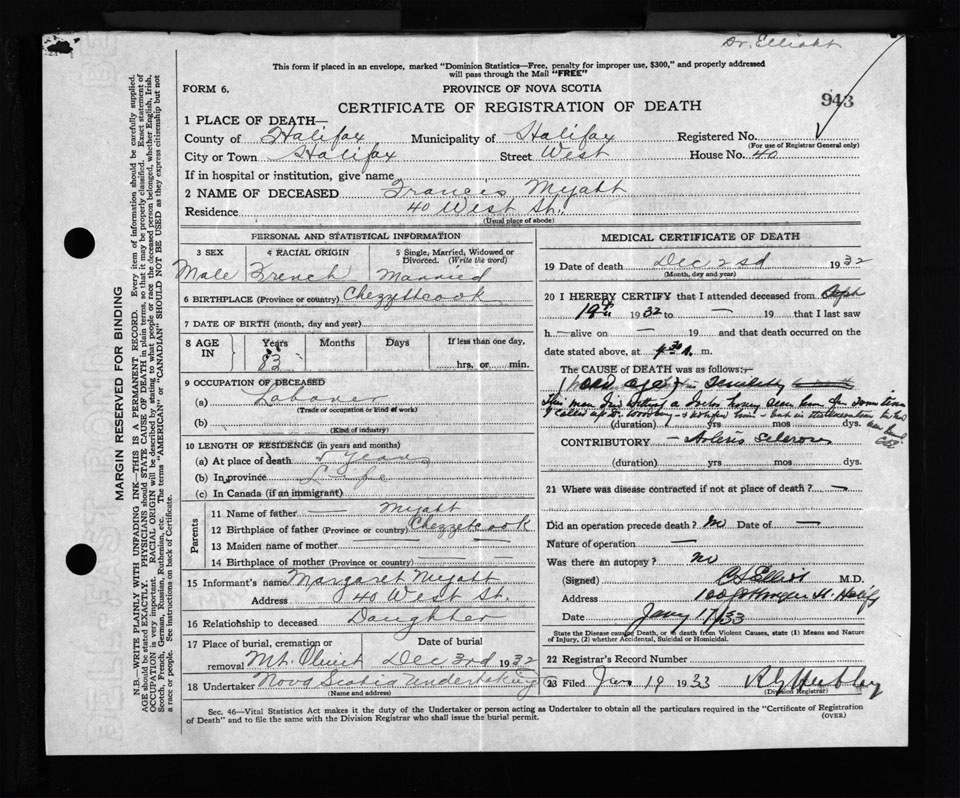 Dr. Elliott
This form if placed in an envelope, marked "Dominion Statistics—Free, penalty for improper use, $300," and properly addressed
will pass through the Mail "FREE"
FORM 6.
PROVINCE OF NOVA SCOTIA
943
CERTIFICATE OF REGISTRATION OF DEATH
1 PLACE OF DEATH—
County of Halifax Municipality of Halifax Registered No.
(For use of Registrar General only)
City or Town Halifax Street West House No. 40
If in hospital or institution, give name
2 NAME OF DECEASED Francis Myatt
Residence 40 West St.
(Usual place of abode)
PERSONAL AND STATISTICAL INFORMATION
3 SEX 4 RACIAL ORIGIN 5 Single, Married, Widowed or Divorced. (Write the word)
Male French Married
6 BIRTHPLACE (Province or country) Chezzettcook
7 DATE OF BIRTH (month, day and year)
8 AGE IN Years Months Days If less than one day,
83 hrs. or min.
9 OCCUPATION OF DECEASED
(a) Labourer
(Trade or occupation or kind of work)
(b)
(Kind of industry)
10 LENGTH OF RESIDENCE (in years and months)
(a) At place of death Years
(b) In province Life
(c) In Canada (if an immigrant)
Parents
11 Name of father — Myatt
12 Birthplace of father (Province or country) Chezzetcook
13 Maiden name of mother — —
14 Birthplace of mother (Province or country) — —
15 Informant's name Margaret Myatt
Address 40 West St.
16 Relationship to deceased Daughter
17 Place of burial, cremation or removal Date of burial
Mt. Olivet Dec 3rd 1932
18 Undertaker Nova Scotia Undertaking Co
(Name and address)
MEDICAL CERTIFICATE OF DEATH
19 Date of death Dec 2nd 1932
(Month, day and year)
20 I HEREBY CERTIFY that I attended deceased from Sept
19th 1932 to — 19 that I last saw
h — alive on — 19 and that death occurred on the
date stated above, at m.
The CAUSE of DEATH was as follows:—
old age — senility
This man died without a doctor having seen him
(duration) yrs mos dys.
CONTRIBUTORY — Arterio Sclerosis
(duration) yrs mos dys.
21 Where was disease contracted if not at place of death? —
Did an operation precede death? No Date of —
Nature of operation —
Was there an autopsy? No
(Signed) Elliott M.D.
Address St. Halifax
Date Jany 17/33
State the Disease causing Death, or in death from Violent Causes, state (1) Means and Nature of Injury, (2) whether Accidental, Suicidal or Homicidal.
22 Registrar's Record Number
23 Filed Jan 19 1933
(Division Registrar)
Sec. 46—Vital Statistics Act makes it the duty of the Undertaker or person acting as Undertaker to obtain all the particulars required in the "Certificate of Registration
of Death" and to file the same with the Division Registrar who shall issue the burial permit.
(OVER)
MARGIN RESERVED FOR BINDING
N.B.—WRITE PLAINLY WITH UNFADING INK—THIS IS A PERMANENT RECORD. Every item of information should be carefully supplied.
AGE should be stated EXACTLY. PHYSICIANS should STATE CAUSE OF DEATH in plain terms, so that it may be properly classified. Exact statement of
OCCUPATION is very important. RACIAL ORIGIN will be described by stating to what people or race the deceased person belonged, whether English, Irish,
Scotch, French, German, Russian, Ruthenian, etc. The terms "AMERICAN" or "CANADIAN" SHOULD NOT BE USED as they express citizenship but not
a race or people. See instructions on back of Certificate.